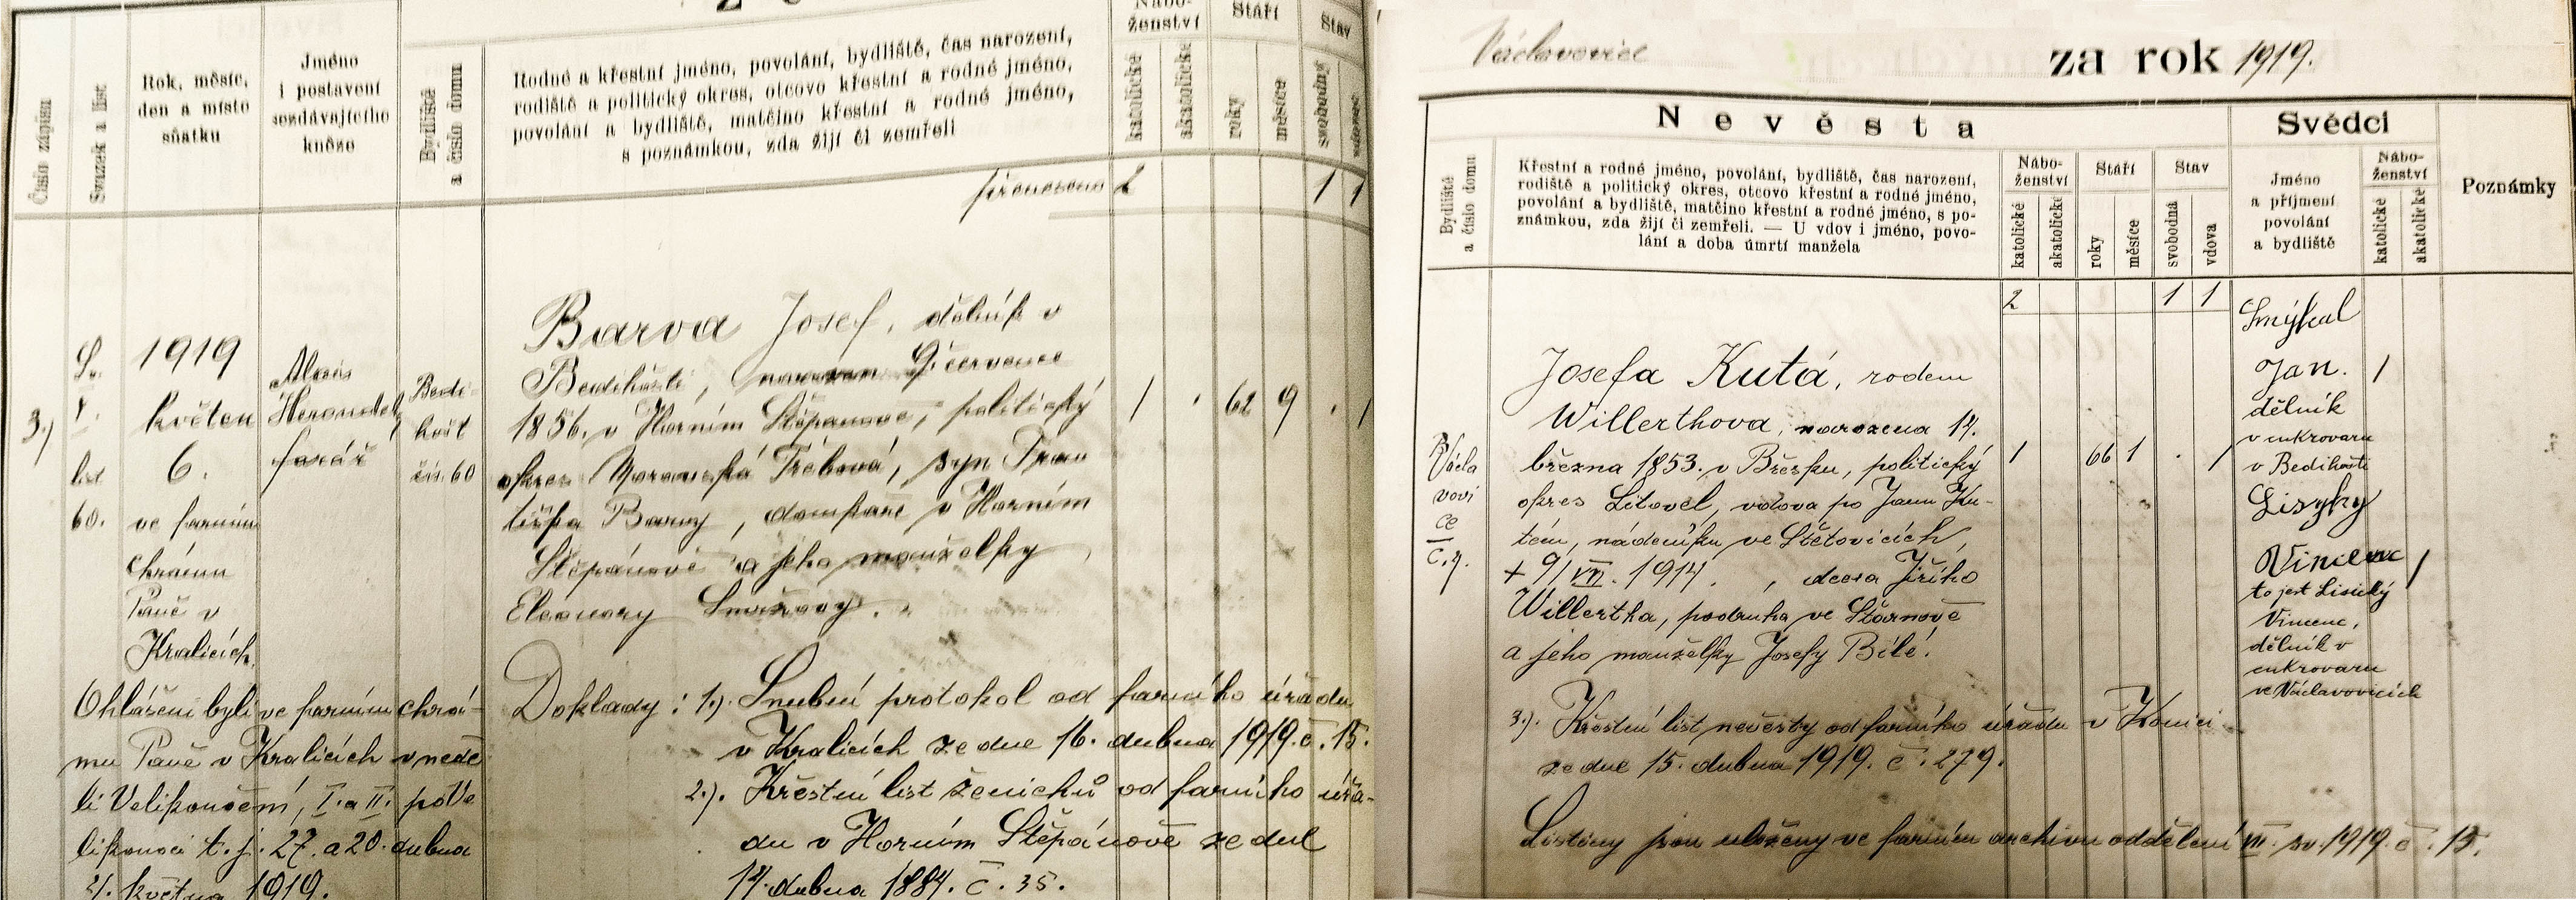 Číslo zápisu
Svazek a list
Rok, měsíc,
den a místo
sňatku
Jméno
i postavení
sezdávajícího
kněze
Bydliště
a číslo domu
Rodné a křestní jméno, povolání, bydliště, čas narození,
rodiště a politický okres, otcovo křestní a rodné jméno,
povolání a bydliště, matčino křestní a rodné jméno,
s poznámkou, zda žijí či zemřeli
Nábo-
ženství
katolické
akatolické
Stáří
roky
měsíce
Stav
svobodný
vdovec
přeneseno 2 1 1
3.)
Sv.
V.
list
60.
1919
květen
6.
ve farním
chrámu
Páně v
Kralicích
Alois
farář
Bedi-
hošt
čís. 60
Barva Josef, dělník v
Bedihošti, narozen 9. července
1856. v Horním Štěpanově, politický
okres Moravská Třebová, syn Fran
tiška Barvy, domkaře v Horním
Štěpánově a jeho manželky
Eleonory
1 . 62 9 . 1
Ohlášeni byli ve farním chrá-
mu Páně v Kralicích v nedě
li Velikonoční, I. a II. po Ve
likonoci t. j. 27. a 20. dubna
4. května 1919.
Doklady: 1.). Snubní protokol od farního úřadu
v Kralicích ze dne 16. dubna 1919. č. 15.
2.). Křestní list ženichů od farního úřa-
du v Horním Štěpánově ze dne
14. dubna 1884. č. 35.
Václavovice
za rok 1919.
Nevěsta
Svědci
Bydliště
a číslo domu
Křestní a rodné jméno, povolání, bydliště, čas narození,
rodiště a politický okres, otcovo křestní a rodné jméno,
povolání a bydliště, matčino křestní a rodné jméno, s po-
známkou, zda žijí či zemřeli. — U vdov i jméno, povo-
lání a doba úmrtí manžela
Nábo-
ženství
katolické
akatolické
Stáří
roky
měsíce
Stav
svobodná
vdova
Jméno
a příjmení
povolání
a bydliště
Nábo-
ženství
katolické
akatolické
Poznámky
2 1 1
Václa
vovi
ce
č. 4.
Josefa Kutá, rodem
Willerthova, narozena 14.
března 1853. v Březsku, politický
okres Litovel, vdova po Janu Ku-
tém, nádeníku ve Štětovicích,
+ 9/VII. 1914. , dcera Jiřího
Willertha, podruha ve Štarnově
a jeho manželky Josefy Bílé.
1 66 1 . 1
Smýkal
Jan. 1
dělník
v cukrovaru
v Bedihošti
Lisyky
Vincenc 1
to jest Lisický
Vincenc,
dělník v
cukrovaru
ve Václavovicích
3.). Křestní list nevěsty od farního úřadu v Konici
ze dne 15. dubna 1919. č. 279.
Listiny jsou uloženy ve farním archivu oddělení VII. sv. 1919. č. 15.